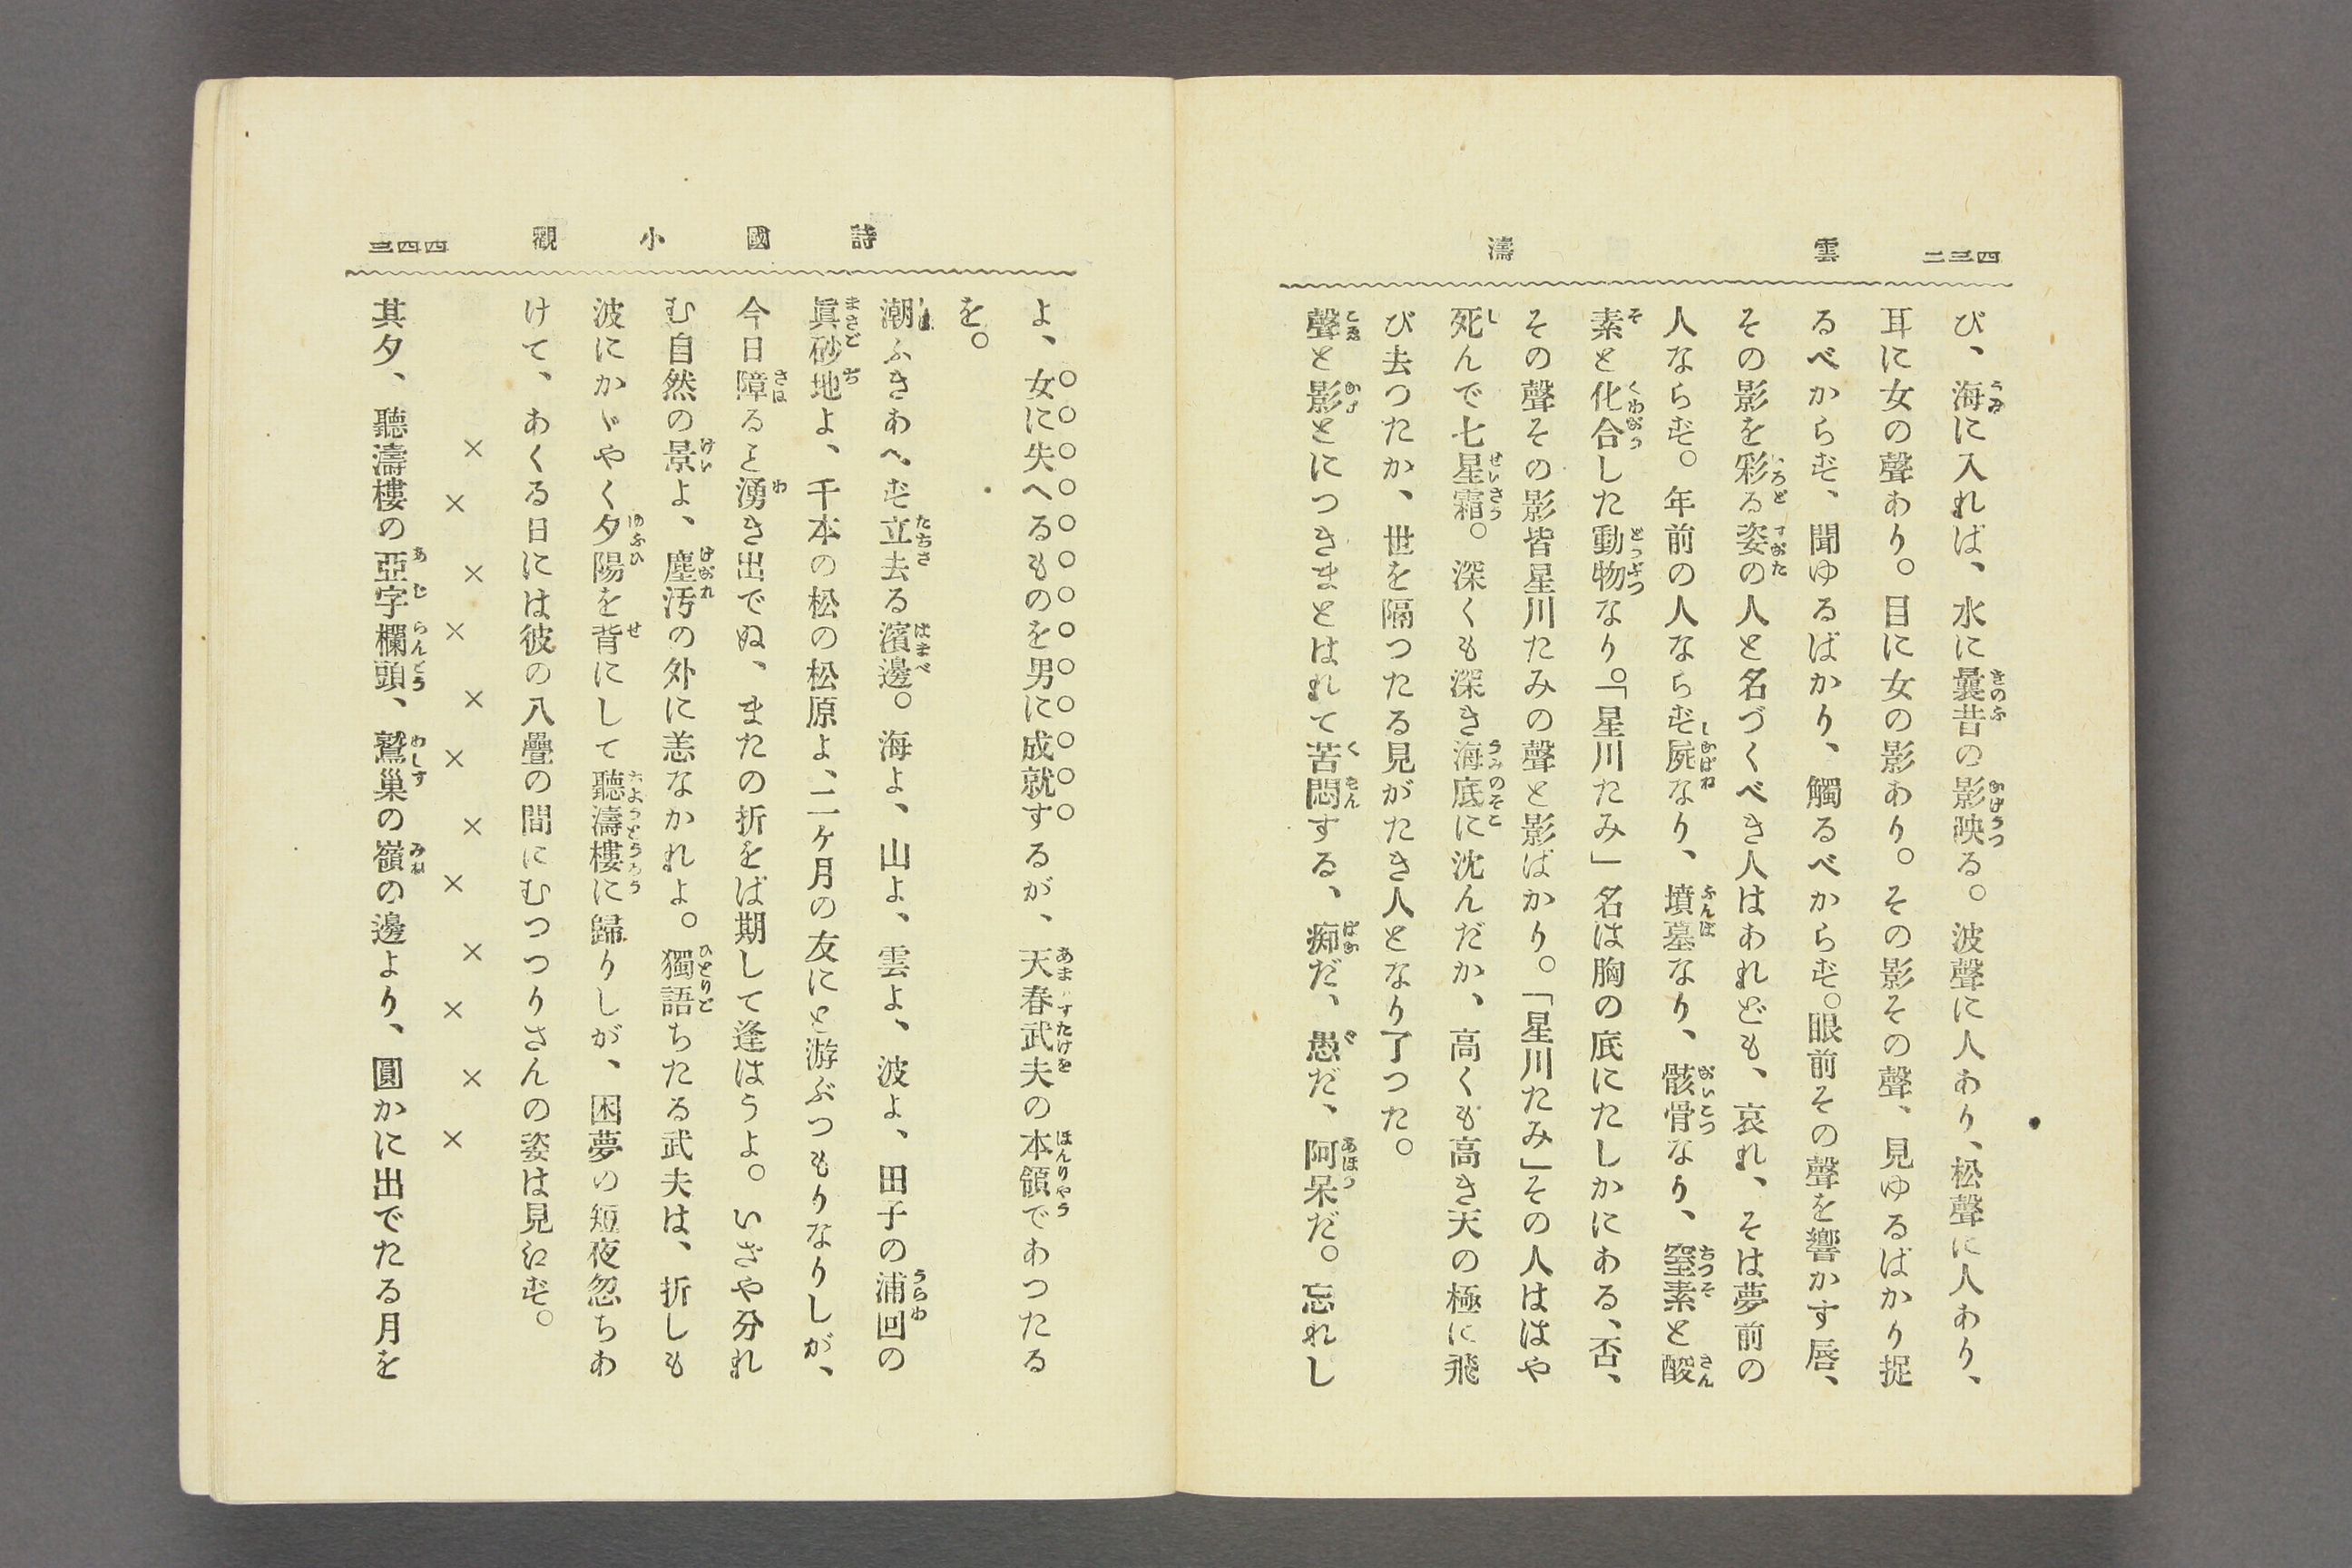 四三二 雲濤
び、海に入れば、水に曩昔の影映る。波聲に人あり、松聲に人あり、
耳に女の聲あり。目に女の影あり。その影その聲、見ゆるばかり捉
るべからず、聞ゆるばかり、觸るべからず。眼前その聲を響かす唇、
その影を彩る姿の人と名づくべき人はあれども、哀れ、そは夢前の
人ならず。年前の人ならず屍なり、墳墓なり、骸骨なり、窒素と酸
素と化合した動物なり。「星川たみ」名は胸の底にたしかにある、否、
その聲その影皆星川たみの聲と影ばかり。「星川たみ」その人ははや
死んで七星霜。深くも深き海底に沈んだか、高くも高き天の極に飛
び去つたか、世を隔つたる見がたき人となり了つた。
聲と影とにつきまとはれて苦悶する、痴だ、愚だ、阿呆だ。忘れし
詩國小觀 四四三
よ、女に失へるものを男に成就するが、天春武夫の本領であつたる
を。
潮ふきあへず立去る濱邊。海よ、山よ、雲よ、波よ、田子の浦回の
眞砂地よ、千本の松の松原よ、二ヶ月の友にと游ぶつもりなりしが、
今日障ると湧き出でぬ、またの折をば期して逢はうよ。いざや分れ
む自然の景よ、塵汚の外に恙なかれよ。獨語ちたる武夫は、折しも
波にかゞやく夕陽を背にして聽濤樓に歸りしが、困夢の短夜忽ちあ
けて、あくる日には彼の八疊の間にむつつりさんの姿は見えず。
× × × × × × × × × × × ×
其夕、聽濤樓の亞字欄頭、鷲巣の嶺の邊より、圓かに出でたる月を